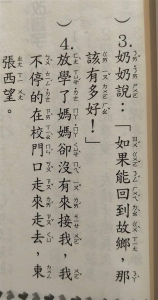 ）3.奶奶說：「如果能回到故鄉，那
該有多好！」
）4.放學了媽媽卻沒有來接我，我
不停的在校門口走來走去，東
張西望。